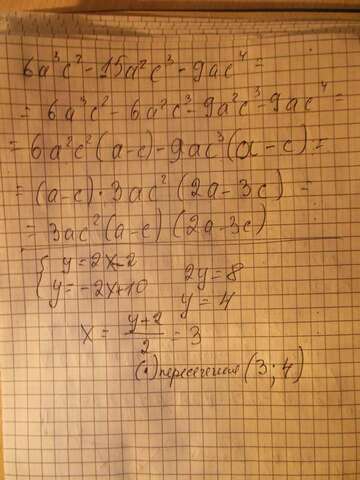 6a³c² - 15a²c³ - 9ac⁴ =
= 6a³c² - 6a²c³ - 9a²c³ - 9ac⁴ =
= 6a²c²(a-c) - 9ac³(a-c) =
= (a-c)·3ac²(2a-3c) =
= 3ac²(a-c)(2a-3c)
{ y = 2x-2
y = -2x+10
2y = 8
y = 4
x = (y+2)/2 = 3
(·) пересечения (3; 4)